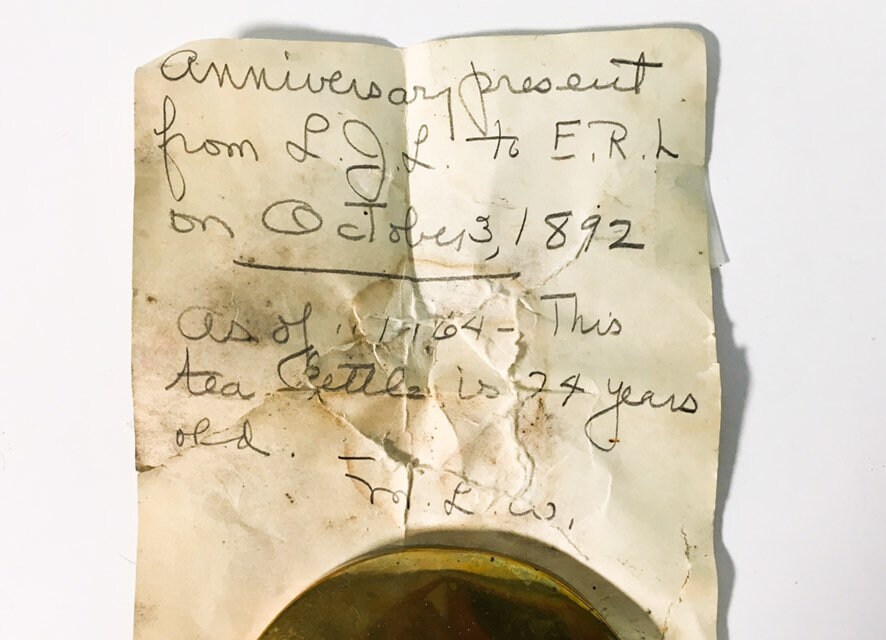 Anniversary present
from L.J.L. to E.R.L
on October 3, 1892
As of 64 - This
tea kettle is 74 years
old.
M.L.W.